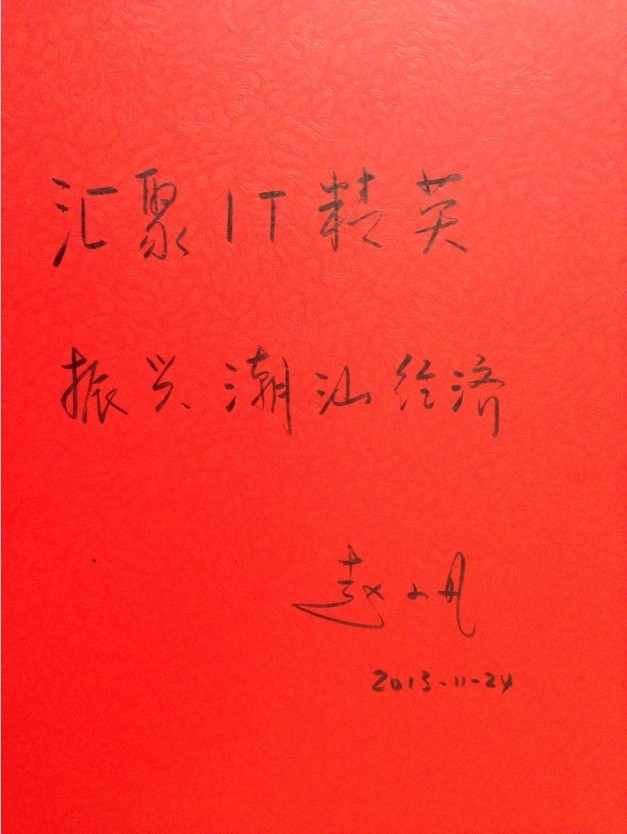 汇聚IT精英
振兴潮汕经济
赵小凡
2013-11-24